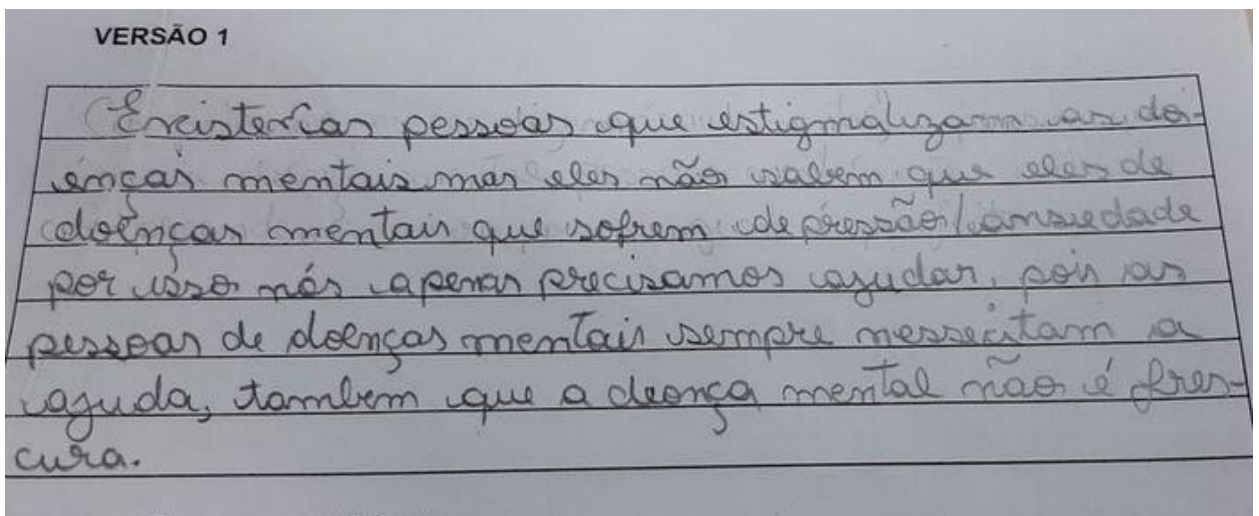 VERSÃO 1
Existem as pessoas que estigmalizam as do-
enças mentais mas eles não sabem que eles de
doenças mentais que sofrem depressão/ansiedade
por isso nós apenas precisamos ajudar, pois as
pessoas de doenças mentais sempre messecitam a
ajuda, tambem que a deonça mental não é fres-
cura.